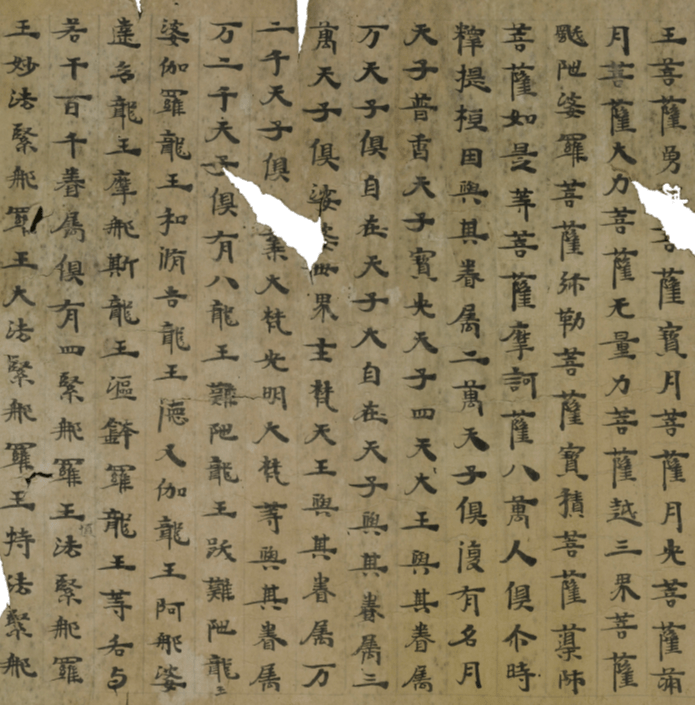 王菩薩勇菩薩寶月菩薩月光菩薩滿
月菩薩大力菩薩无量力菩薩越三界菩薩
颰陁婆羅菩薩弥勒菩薩寶積菩薩導師
菩薩如是等菩薩摩訶薩八萬人俱尒時
釋提桓因與其眷属二萬天子俱復有名月
天子普香天子寶光天子四天大王與其眷属
万天子俱自在天子大自在天子與其眷属三
萬天子俱娑世界主梵天王與其眷属万
二千天子俱棄大梵光明大梵等與其眷属
万二千天子俱有八龍王難陁龍王跋難陁龍王
娑伽羅龍王和脩吉龍王德叉伽龍王阿那婆
達多龍王摩那斯龍王漚鉢羅龍王等各与
若干百千眷属俱有四緊那羅王法緊那羅
王妙法緊那羅王大法緊那羅王持法緊那